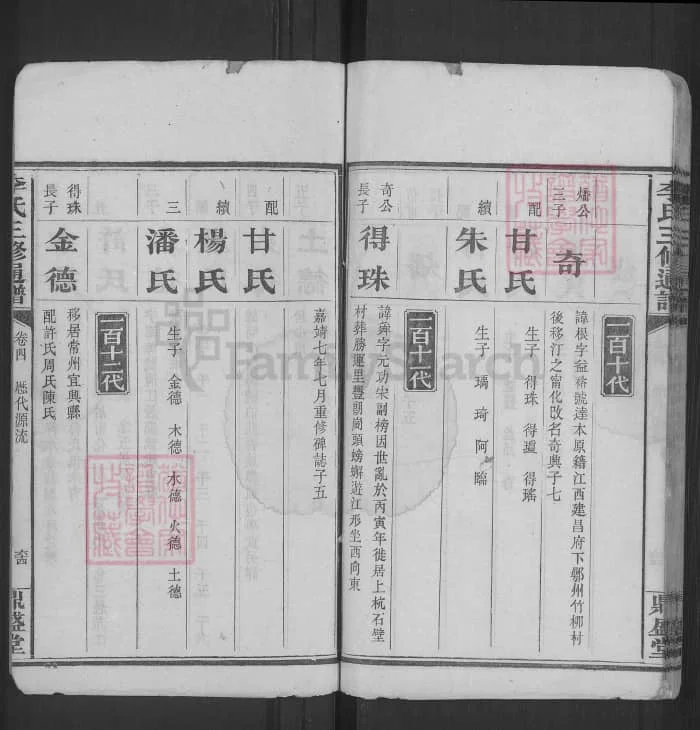 李氏三修通譜
鼎盛堂
燔公三子
奇
一百十代
諱根字益裕號達本原籍江西建昌府下鄭州竹柳村
後移汀之甯化改名奇興子七
配
甘氏
生子 得珠 得瓊 得瑤
續
朱氏
生子 瑀 琦 阿 臨
奇公長子
得珠
一百十一代
諱舜字元功宋副榜因世亂於丙寅年徙居上杭石壁
村葬勝運里豐朗崗頭螃蠏遊江形坐西向東
嘉靖七年七月重修碑誌子五
配
甘氏
續
楊氏
三
潘氏
生子 金德 木德 水德 火德 土德
得珠長子
金德
一百十二代
移居常州宜興縣
配許氏周氏陳氏
李氏三修通譜
卷四 歷代源流
鼎盛堂
FamilySearch